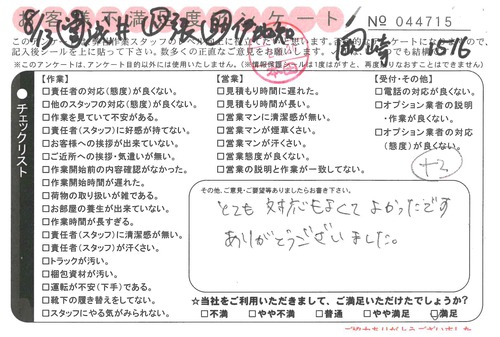 お客様不満度アンケート
No 044715
記入後シールを上に貼って下さい。
(※このアンケートは、アンケート目的以外には使用いたしません。)
チェックリスト
【作業】
□責任者の対応(態度)が良くない。
□他のスタッフの対応(態度)が良くない。
□作業を見ていて不安がある。
□責任者(スタッフ)に好感が持てない。
□お客様への挨拶が出来ていない。
□ご近所への挨拶・気遣いが無い。
□作業開始前の内容確認がなかった。
□作業開始時間が遅れた。
□荷物の取り扱いが雑である。
□お部屋の養生が出来ていない。
□作業時間が長すぎる。
□責任者(スタッフ)に清潔感が無い。
□責任者(スタッフ)が汗くさい。
□トラックが汚い。
□梱包資材が汚い。
□運転が不安(下手)である。
□靴下の履き替えをしてない。
□スタッフにやる気がみられない。
【営業】
□見積もり時間に遅れた。
□見積もり時間が長い。
□営業マンに清潔感が無い。
□営業マンが煙草くさい。
□営業マンが汗くさい。
□営業態度が良くない。
□営業の説明と作業が一致してない。
【受付・その他】
□電話の対応が良くない。
□オプション業者の説明
・作業が良くない。
□オプション業者の対応
(態度)が良くない。
その他、ご意見・ご要望等ありましたらお書き下さい。
とても対応もよくてよかったです
ありがとうございました。
☆当社をご利用いただきまして、ご満足いただけたでしょうか?
□不満 □やや不満 □普通 □やや満足 □満足
ご協力ありがとうございました